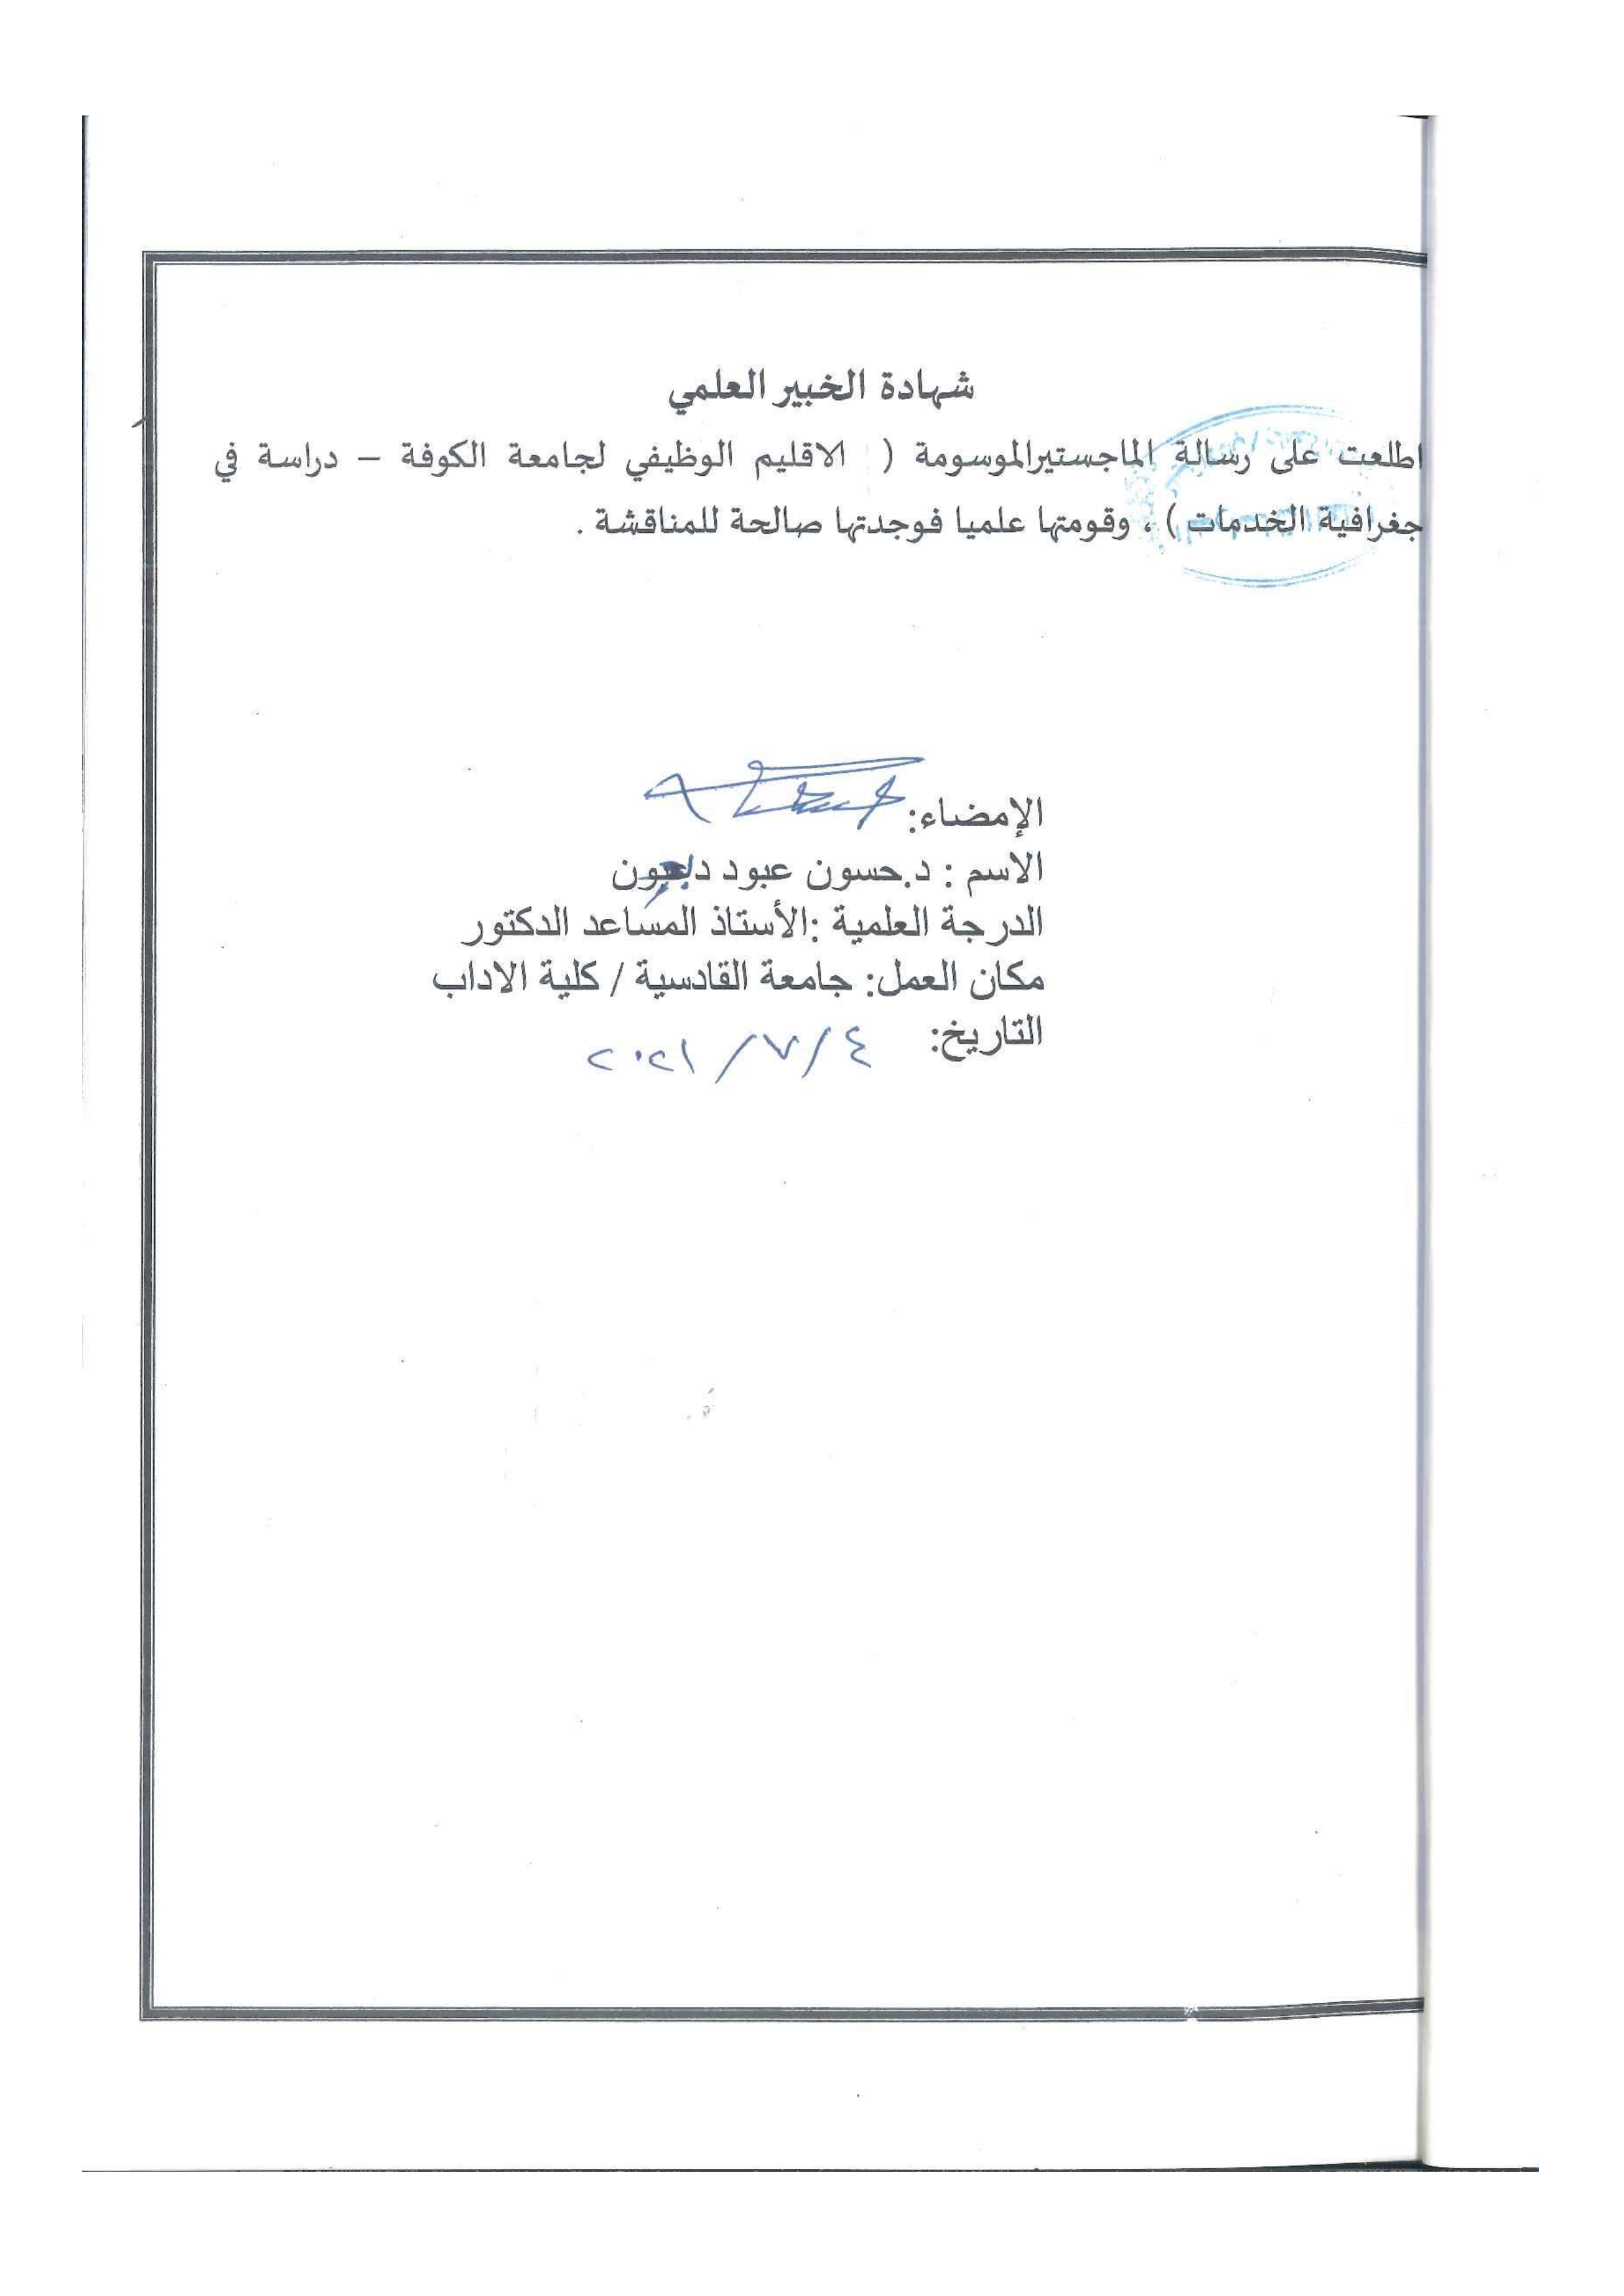 شهادة الخبير العلمي
اطلعت على رسالة الماجستيرالموسومة ( الاقليم الوظيفي لجامعة الكوفة – دراسة في
جغرافية الخدمات ) ، وقومتها علميا فوجدتها صالحة للمناقشة .
الإمضاء:
الاسم : د.حسون عبود
الدرجة العلمية :الأستاذ المساعد الدكتور
مكان العمل: جامعة القادسية / كلية الاداب
التاريخ: ٤ /٧/ ٢٠٢١